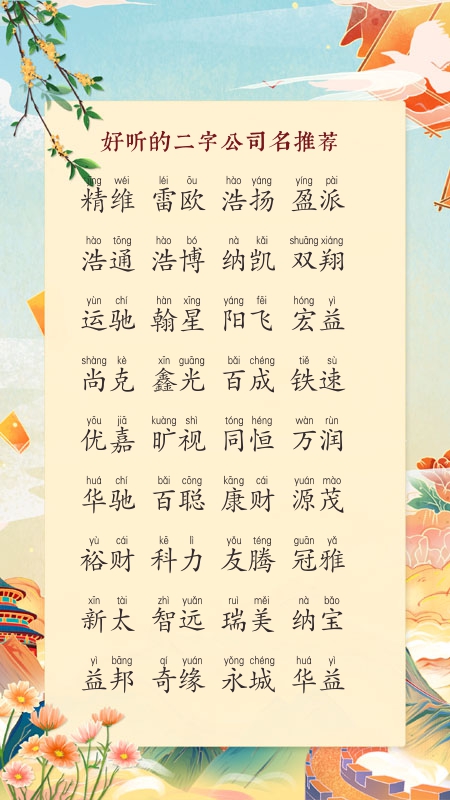 好听的二字公司名推荐
jīng wéi léi ōu hào yáng yíng pài
精维 雷欧 浩扬 盈派
hào tōng hào bó nà kǎi shuāng xiáng
浩通 浩博 纳凯 双翔
yùn chí hàn xīng yáng fēi hóng yì
运驰 翰星 阳飞 宏益
shàng kè xīn guāng bǎi chéng tiě sù
尚克 鑫光 百成 铁速
yōu jiā kuàng shì tóng héng wàn rùn
优嘉 旷视 同恒 万润
huá chí bǎi cōng kāng cái yuán mào
华驰 百聪 康财 源茂
yù cái kē lì yǒu téng guān yǎ
裕财 科力 友腾 冠雅
xīn tài zhì yuǎn ruì měi nà bǎo
新太 智远 瑞美 纳宝
yì bāng qí yuán yǒng chéng huá yì
益邦 奇缘 永城 华益